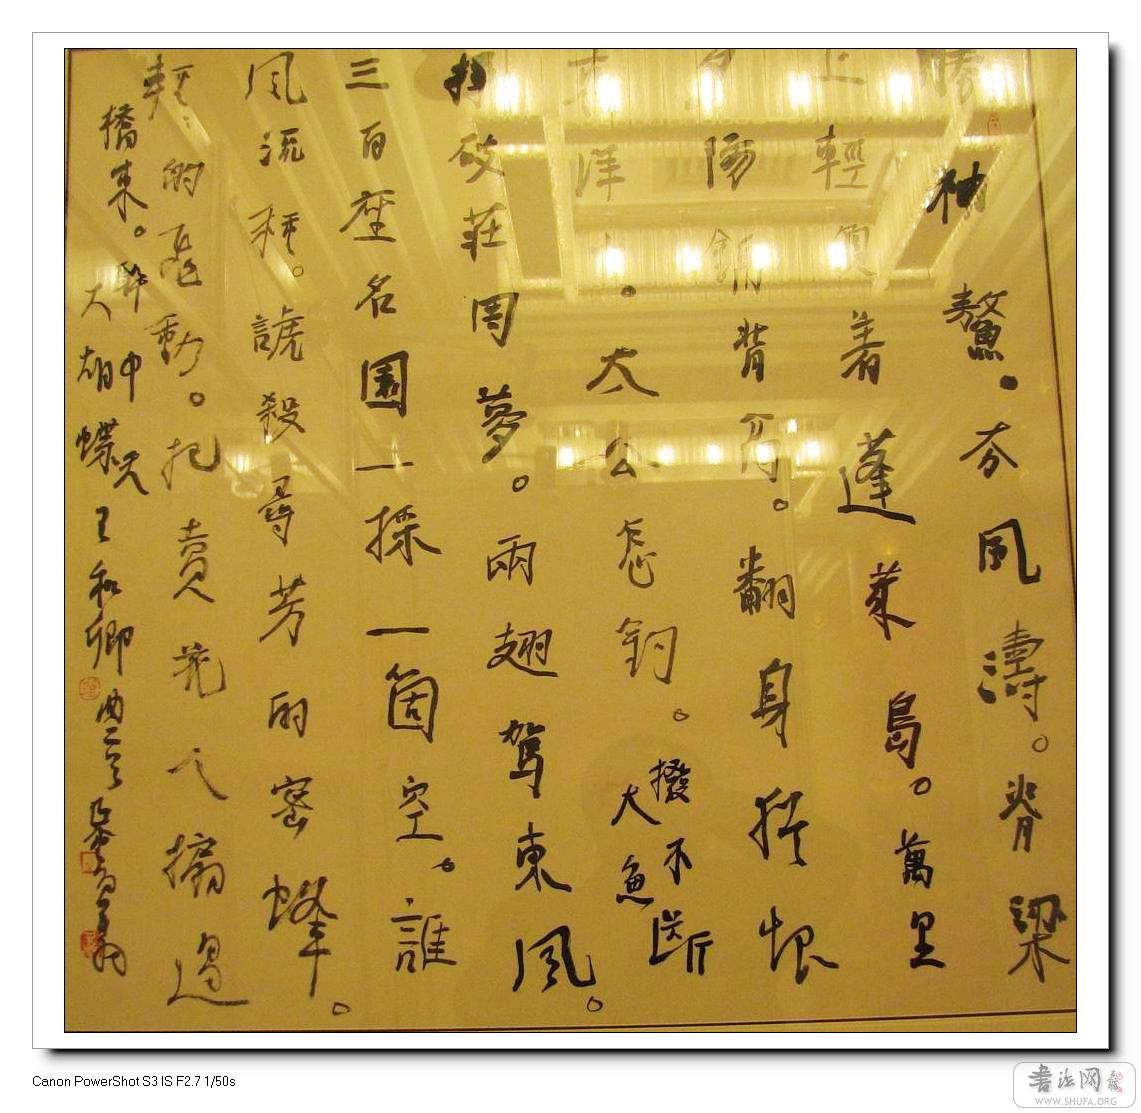 勝神鰲。夯風濤。脊梁
上輕負着蓬萊島。萬里
夕陽錦背高。翻身猶恨
東洋小。太公怎釣。
撥不斷
大魚
掙破莊周夢。兩翅駕東風。
三百座名園一採一箇空。誰
風流種。諕殺尋芳的蜜蜂。
輕輕的飛動。把賣花人搧過
橋東。醉中天
大蝴蝶 王和卿
Canon PowerShot S3 IS F2.7 1/50s
书法网
WWW.SHUFA.ORG